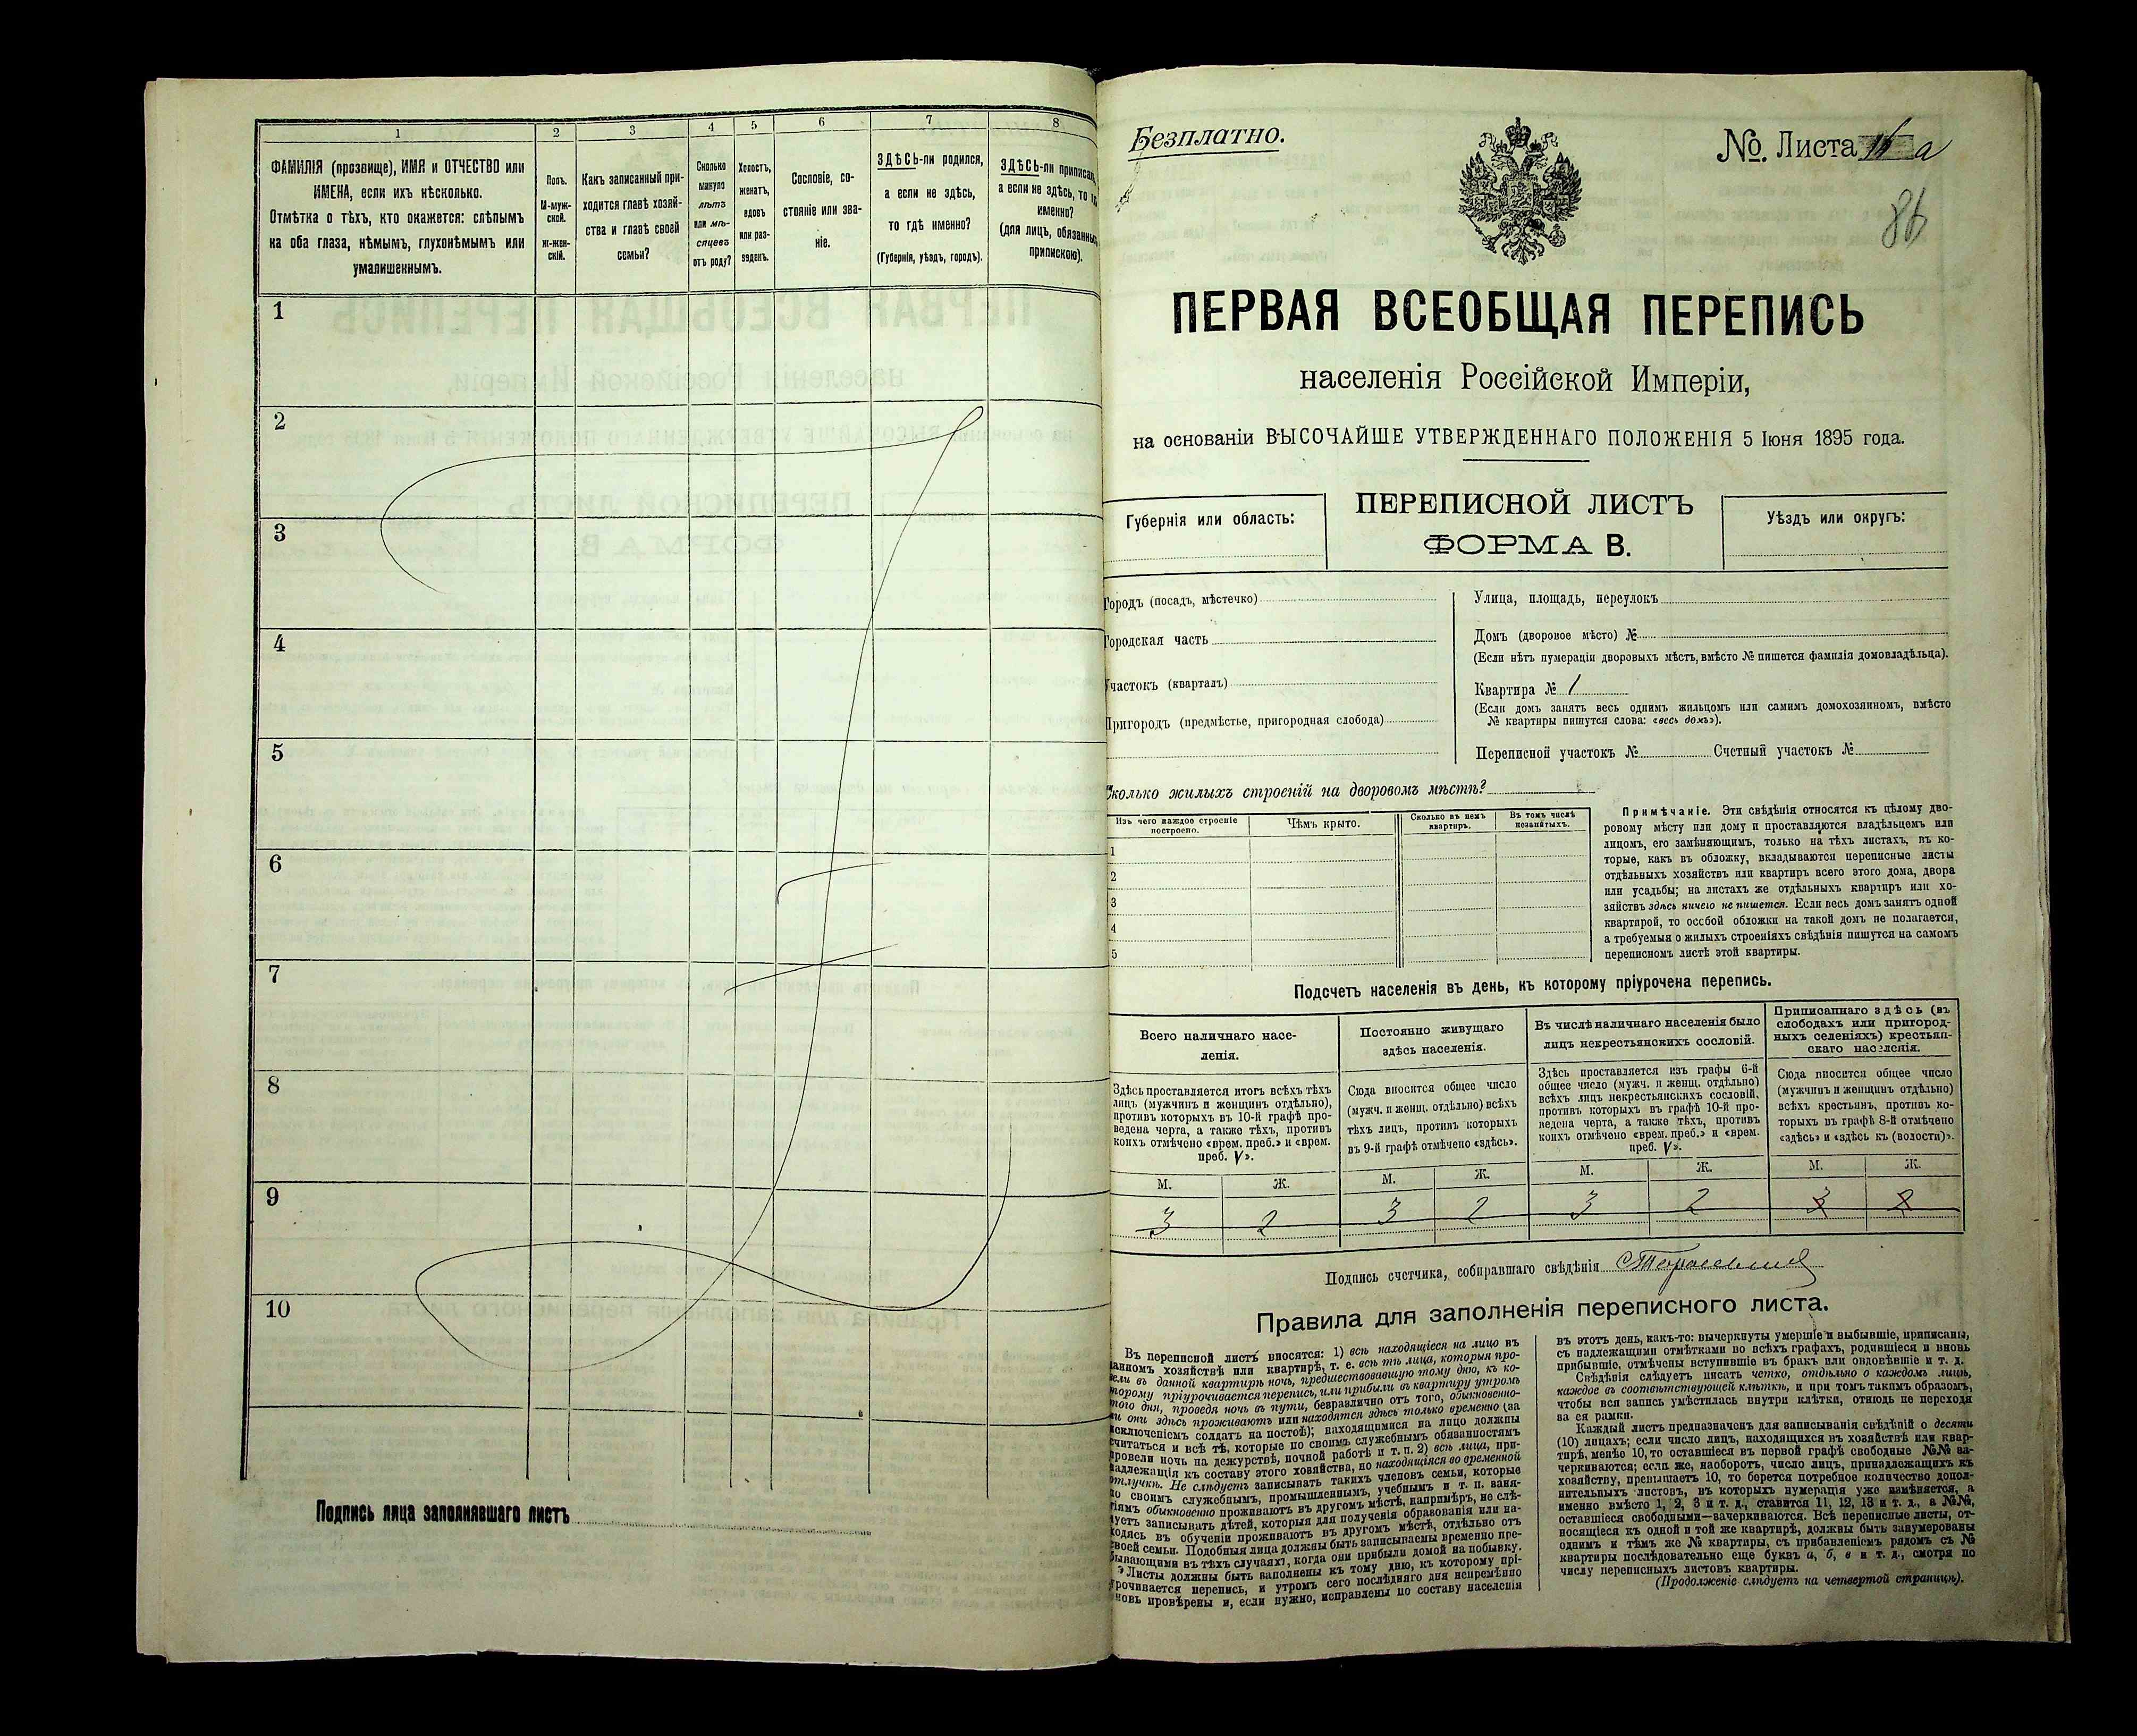 1 2 3 4 5 6 7 8
ФАМИЛІЯ (прозвище), ИМЯ и ОТЧЕСТВО или
ИМЕНА, если ихъ нѣсколько.
Отмѣтка о тѣхъ, кто окажется: слѣпымъ
на оба глаза, нѣмымъ, глухонѣмымъ или
умалишеннымъ.
Полъ.
М-муж-
ской.
Ж-жен-
скій.
Какъ записанный при-
ходится главѣ хозяй-
ства и главѣ своей
семьи?
Сколько
минуло
лѣтъ
или мѣ-
сяцевъ
отъ роду?
Холостъ,
женатъ,
вдовъ
или раз-
веденъ.
Сословіе, со-
стояніе или зва-
ніе.
ЗДѢСЬ-ли родился,
а если не здѣсь,
то гдѣ именно?
(Губернія, уѣздъ, городъ).
ЗДѢСЬ-ли приписанъ,
а если не здѣсь, то гдѣ
именно?
(для лицъ, обязанныхъ
припискою).
1
2
3
4
5
6
7
8
9
10
Подпись лица заполнявшаго листъ
Безплатно.
№. Листа а
86
ПЕРВАЯ ВСЕОБЩАЯ ПЕРЕПИСЬ
населенія Россійской Имперіи,
на основаніи ВЫСОЧАЙШЕ УТВЕРЖДЕННАГО ПОЛОЖЕНІЯ 5 Іюня 1895 года.
Губернія или область:
ПЕРЕПИСНОЙ ЛИСТЪ
ФОРМА В.
Уѣздъ или округъ:
Городъ (посадъ, мѣстечко)
Городская часть
Участокъ (кварталъ)
Пригородъ (предмѣстье, пригородная слобода)
Улица, площадь, переулокъ
Домъ (дворовое мѣсто) №
(Если нѣтъ нумераціи дворовыхъ мѣстъ, вмѣсто № пишется фамилія домовладѣльца).
Квартира № 1
(Если домъ занятъ весь однимъ жильцомъ или самимъ домохозяиномъ, вмѣсто
№ квартиры пишутся слова: «весь домъ»).
Переписной участокъ № Счетный участокъ №
Сколько жилыхъ строеній на дворовомъ мѣстѣ?
Изъ чего каждое строеніе
построено.
Чѣмъ крыто.
Сколько въ немъ
квартиръ.
Въ томъ числѣ
незанятыхъ.
1
2
3
4
5
Примѣчаніе. Эти свѣдѣнія относятся къ цѣлому дво-
ровому мѣсту или дому и проставляются владѣльцемъ или
лицомъ, его замѣняющимъ, только на тѣхъ листахъ, въ ко-
торые, какъ въ обложку, вкладываются переписные листы
отдѣльныхъ хозяйствъ или квартиръ всего этого дома, двора
или усадьбы; на листахъ же отдѣльныхъ квартиръ или хо-
зяйствъ здѣсь ничего не пишется. Если весь домъ занятъ одной
квартирой, то особой обложки на такой домъ не полагается,
а требуемыя о жилыхъ строеніяхъ свѣдѣнія пишутся на самомъ
переписномъ листѣ этой квартиры.
Подсчетъ населенія въ день, къ которому пріурочена перепись.
Всего наличнаго насе-
ленія.
Здѣсь проставляется итогъ всѣхъ тѣхъ
лицъ (мужчинъ и женщинъ отдѣльно),
противъ которыхъ въ 10-й графѣ про-
ведена черта, а также тѣхъ, противъ
коихъ отмѣчено «врем. преб.» и «врем.
преб. V».
Постоянно живущаго
здѣсь населенія.
Сюда вносится общее число
(мужч. и женщ. отдѣльно) всѣхъ
тѣхъ лицъ, противъ которыхъ
въ 9-й графѣ отмѣчено «здѣсь».
Въ числѣ наличнаго населенія было
лицъ некрестьянскихъ сословій.
Здѣсь проставляется изъ графы 6-й
общее число (мужч. и женщ. отдѣльно)
всѣхъ лицъ некрестьянскихъ сословій,
противъ которыхъ въ графѣ 10-й про-
ведена черта, а также тѣхъ, противъ
коихъ отмѣчено «врем. преб.» и «врем.
преб. V».
Приписаннаго здѣсь (въ
слободахъ или пригород-
ныхъ селеніяхъ) крестьян-
скаго населенія.
Сюда вносится общее число
(мужчинъ и женщинъ отдѣльно)
всѣхъ крестьянъ, противъ ко-
торыхъ въ графѣ 8-й отмѣчено
«здѣсь» и «здѣсь къ (волости)».
М. Ж. М. Ж. М. Ж. М. Ж.
3 2 3 2 3 2 3 2
Подпись счетчика, собиравшаго свѣдѣнія
Правила для заполненія переписного листа.
Въ переписной листъ вносятся: 1) всѣ находящіеся на лицо въ
данномъ хозяйствѣ или квартирѣ, т. е. всѣ тѣ лица, которыя про-
вели въ данной квартирѣ ночь, предшествовавшую тому дню, къ ко-
торому пріурочивается перепись, или прибыли въ квартиру утромъ
того дня, проведя ночь въ пути, безразлично отъ того, обыкновенно-
ли они здѣсь проживаютъ или находятся здѣсь только временно (за
исключеніемъ солдатъ на постоѣ); находящимися на лицо должны
считаться и всѣ тѣ, которые по своимъ служебнымъ обязанностямъ
провели ночь на дежурствѣ, ночной работѣ и т. п. 2) всѣ лица, при-
надлежащія къ составу этого хозяйства, но находящіяся во временной
отлучкѣ. Не слѣдуетъ записывать такихъ членовъ семьи, которые
по своимъ служебнымъ, промышленнымъ, учебнымъ и т. п. заня-
тіямъ обыкновенно проживаютъ въ другомъ мѣстѣ, напримѣръ, не слѣ-
дуетъ записывать дѣтей, которыя для полученія образованія или на-
ходясь въ обученіи проживаютъ въ другомъ мѣстѣ, отдѣльно отъ
своей семьи. Подобныя лица должны быть записываемы временно пре-
бывающими въ тѣхъ случаяхъ, когда они прибыли домой на побывку.
Листы должны быть заполнены къ тому дню, къ которому прі-
урочивается перепись, и утромъ сего послѣдняго дня непремѣнно
вновь провѣрены и, если нужно, исправлены по составу населенія
въ этотъ день, какъ-то: вычеркнуты умершіе и выбывшіе, приписаны,
съ надлежащими отмѣтками во всѣхъ графахъ, родившіеся и вновь
прибывшіе, отмѣчены вступившіе въ бракъ или овдовѣвшіе и т. д.
Свѣдѣнія слѣдуетъ писать четко, отдѣльно о каждомъ лицѣ,
каждое въ соотвѣтствующей клѣткѣ, и при томъ такимъ образомъ,
чтобы вся запись умѣстилась внутри клѣтки, отнюдь не переходя
за ея рамки.
Каждый листъ предназначенъ для записыванія свѣдѣній о десяти
(10) лицахъ; если число лицъ, находящихся въ хозяйствѣ или квар-
тирѣ, менѣе 10, то оставшіеся въ первой графѣ свободные №№ за-
черкиваются; если же, наоборотъ, число лицъ, принадлежащихъ къ
хозяйству, превышаетъ 10, то берется потребное количество допол-
нительныхъ листовъ, въ которыхъ нумерація уже измѣняется, а
именно вмѣсто 1, 2, 3 и т. д., ставится 11, 12, 13 и т. д., а №№,
оставшіеся свободными—зачеркиваются. Всѣ переписные листы, от-
носящіеся къ одной и той же квартирѣ, должны быть занумерованы
однимъ и тѣмъ же № квартиры, съ прибавленіемъ рядомъ съ №
квартиры послѣдовательно еще буквъ а, б, в и т. д., смотря по
числу переписныхъ листовъ квартиры.
(Продолженіе слѣдуетъ на четвертой страницѣ).